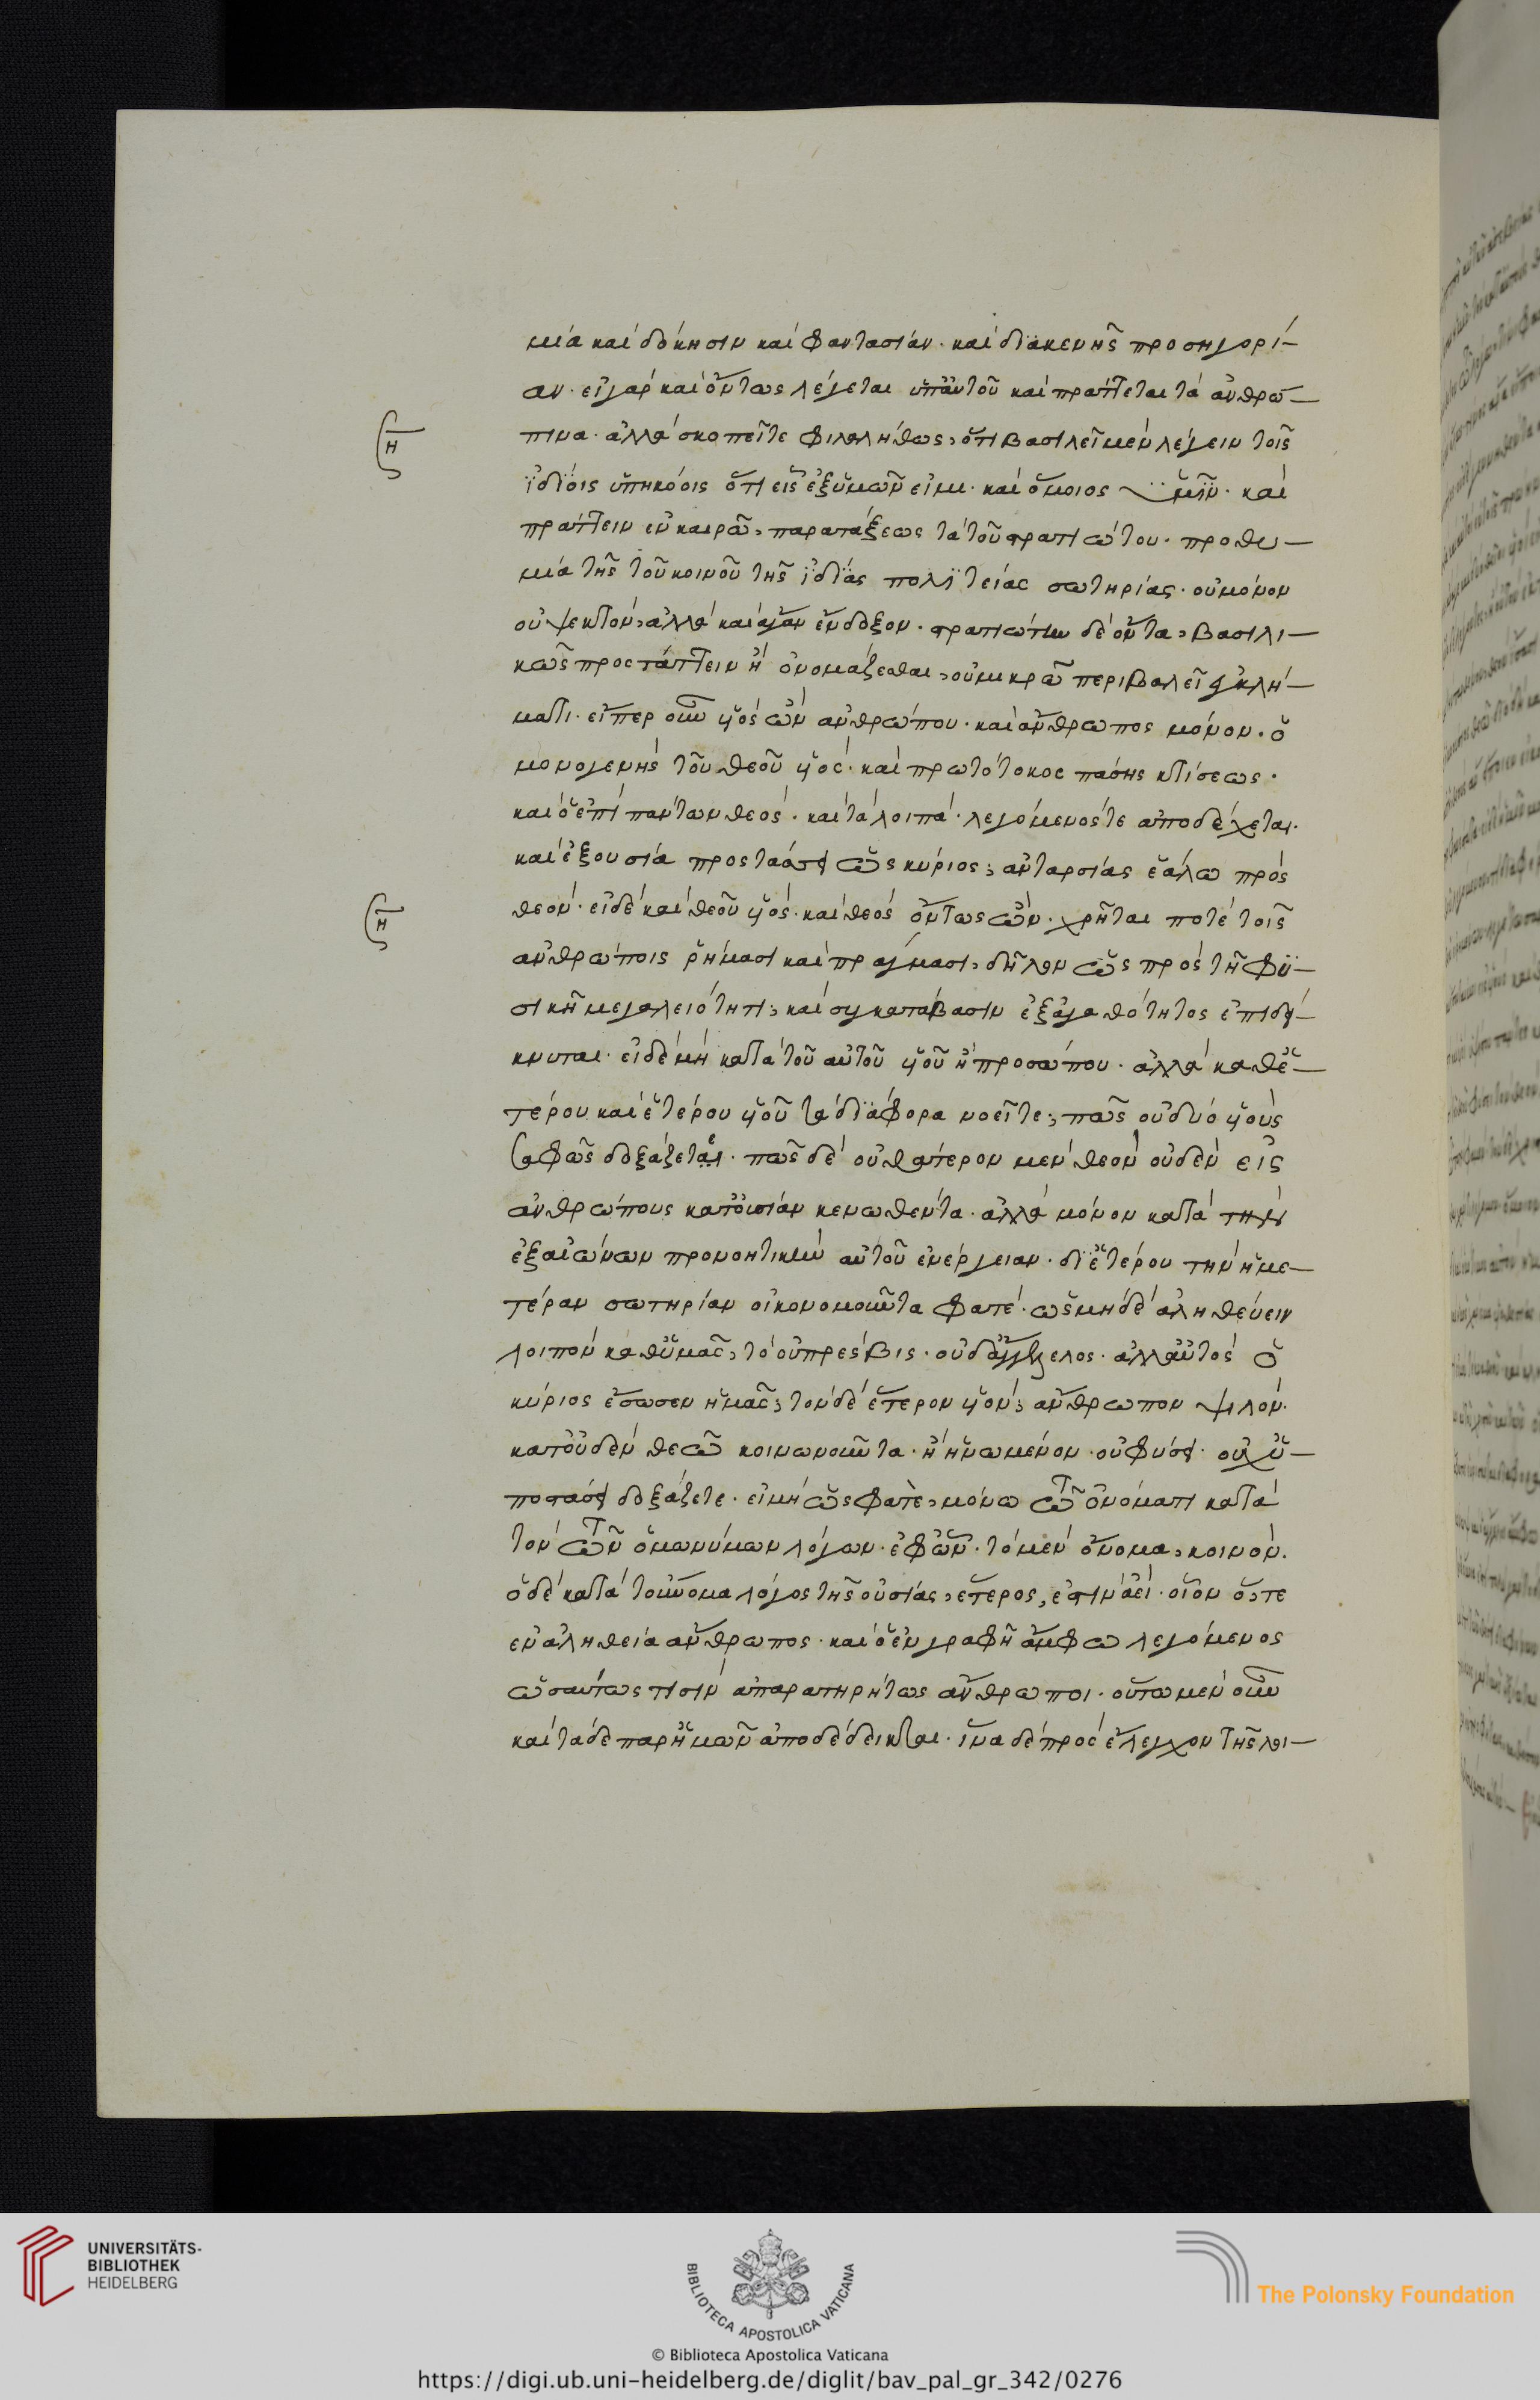 μία καὶ δόκησιν καὶ φαντασίαν· καὶ διακενῆς προσηγορί–
αν· εἰ γὰρ καὶ ὄντως λέγεται ὑπ' αὐτοῦ καὶ πράττεται τὰ ἀνθρώ–
πινα· ἀλλὰ σκοπεῖτε φιλαλήθως, ὅτι βασιλεῖ μὲν λέγειν τοῖς
ἰδίοις ὑπηκόοις ὅτι εἷς ἐξ ὑμῶν εἰμι· καὶ ὅμοιος ὑμῖν· καὶ
πράττειν ἐν καιρῷ, παρατάξεως τὰ τοῦ στρατιώτου· προθυ–
μία τῆς τοῦ κοινοῦ τῆς ἰδίας πολιτείας σωτηρίας· οὐ μόνον
οὐ ψεκτόν, ἀλλὰ καὶ ἄγαν ἔνδοξον· στρατιώτην δὲ ὄντα, βασιλι–
κῶς προστάττειν ἢ ὀνομάζεσθαι, οὐ μικρῷ περιβαλεῖ ἐγκλή–
ματι· εἴπερ οὖν υἱὸς ὢν ἀνθρώπου· καὶ ἄνθρωπος μόνον· ὁ
μονογενὴς τοῦ θεοῦ υἱός· καὶ πρωτότοκος πάσης κτίσεως·
καὶ ὁ ἐπὶ πάντων θεός· καὶ τὰ λοιπά· λεγόμενός τε ἀποδέχεται·
καὶ ἐξουσία προστάσσει ὡς κύριος, ἀνταρσίας ἑάλω πρὸς
θεόν· εἰ δὲ καὶ θεοῦ υἱός· καὶ θεὸς ὄντως ὤν· χρῆται ποτὲ τοῖς
ἀνθρώποις ῥήμασι καὶ πράγμασι, δῆλον ὡς πρὸς τῇ φυ–
σικῇ μεγαλειότητι, καὶ συγκατάβασιν ἐξ ἀγαθότητος ἐπιδεί–
κνυται· εἰ δὲ μὴ κατὰ τοῦ αὐτοῦ υἱοῦ ἢ προσώπου· ἀλλὰ καθ' ἑ–
τέρου καὶ ἑτέρου υἱοῦ τὰ διάφορα νοεῖτε, πῶς οὐ δύο υἱοὺς
σαφῶς δοξάζεται· πῶς δὲ οὐ θάτερον μὲν θεὸν οὐδὲν εἰς
ἀνθρώπους κατ' οὐσίαν κενωθέντα· ἀλλὰ μόνον κατὰ τὴν
ἐξ αἰώνων προνοητικὴν αὐτοῦ ἐνέργειαν· δι' ἑτέρου τὴν ἡμε–
τέραν σωτηρίαν οἰκονομοῦντα φατέ· ὡς μηδὲ ἀληθεύειν
λοιπὸν καθ' ὑμᾶς, τὸ οὐ πρέσβις· οὐδ' ἄγγελος· ἀλλ' αὐτὸς ὁ
κύριος ἔσωσεν ἡμᾶς, τὸν δὲ ἕτερον υἱόν, ἄνθρωπον ψιλόν·
κατ' οὐδὲν θεῷ κοινωνοῦντα· ἢ ἡνωμένον· οὐ φύσει· οὐχ ὑ–
ποστάσει δοξάζετε· εἰ μὴ ὡς φατὲ, μόνῳ τῷ ὀνόματι κατὰ
τὸν τῶν ὁμωνύμων λόγων· ἐφ' ὧν· τὸ μὲν ὄνομα, κοινόν·
ὁ δὲ κατὰ τοὔνομα λόγος τῆς οὐσίας, ἕτερος, ἐστὶν ἀεί· οἷον ὅ, τε
ἐν ἀληθεία ἄνθρωπος· καὶ ὁ ἐν γραφῇ ἄμφω λεγόμενος
ὡσαύτως τισὶν ἀπαρατηρήτως ἄνθρωποι· οὕτω μὲν οὖν
καὶ τάδε παρ' ἡμῶν ἀποδέδεικται· ἵνα δὲ πρὸς ἔλεγχον τῆς λοι–
UNIVERSITÄTS-
BIBLIOTHEK
HEIDELBERG
BIBLIOTECA APOSTOLICA VATICANA
The Polonsky Foundation
© Biblioteca Apostolica Vaticana
https://digi.ub.uni-heidelberg.de/diglit/bav_pal_gr_342/0276